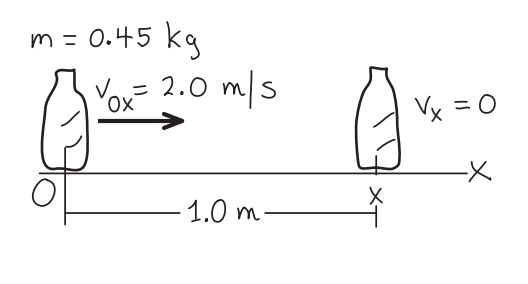 m = 0.45 kg
v0x = 2.0 m/s
vx = 0
O
x
x
1.0 m